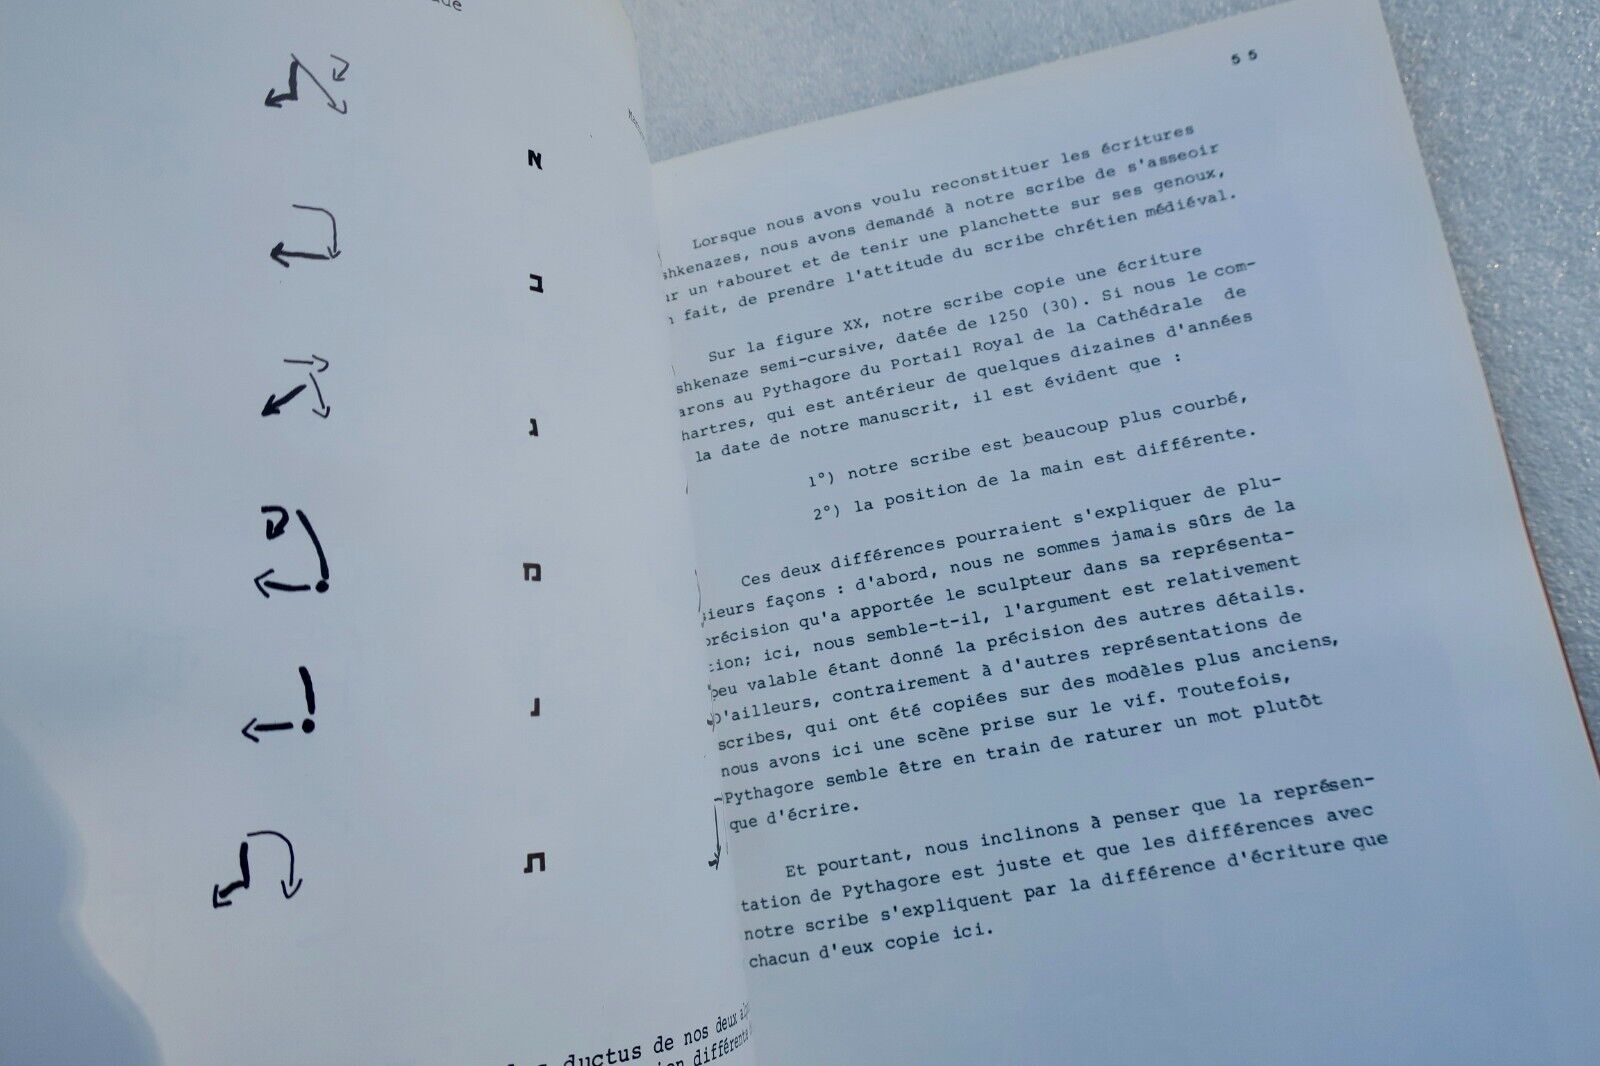 א
ב
ג
מ
נ
ת
ductus de nos deux
différente
55
Lorsque nous avons voulu reconstituer les écritures
shkenazes, nous avons demandé à notre scribe de s'asseoir
ur un tabouret et de tenir une planchette sur ses genoux,
n fait, de prendre l'attitude du scribe chrétien médiéval.
Sur la figure XX, notre scribe copie une écriture
shkenaze semi-cursive, datée de 1250 (30). Si nous le com-
arons au Pythagore du Portail Royal de la Cathédrale de
hartres, qui est antérieur de quelques dizaines d'années
la date de notre manuscrit, il est évident que :
1°) notre scribe est beaucoup plus courbé,
2°) la position de la main est différente.
Ces deux différences pourraient s'expliquer de plu-
sieurs façons : d'abord, nous ne sommes jamais sûrs de la
précision qu'a apportée le sculpteur dans sa représenta-
tion; ici, nous semble-t-il, l'argument est relativement
peu valable étant donné la précision des autres détails.
D'ailleurs, contrairement à d'autres représentations de
scribes, qui ont été copiées sur des modèles plus anciens,
nous avons ici une scène prise sur le vif. Toutefois,
Pythagore semble être en train de raturer un mot plutôt
que d'écrire.
Et pourtant, nous inclinons à penser que la représen-
tation de Pythagore est juste et que les différences avec
notre scribe s'expliquent par la différence d'écriture que
chacun d'eux copie ici.